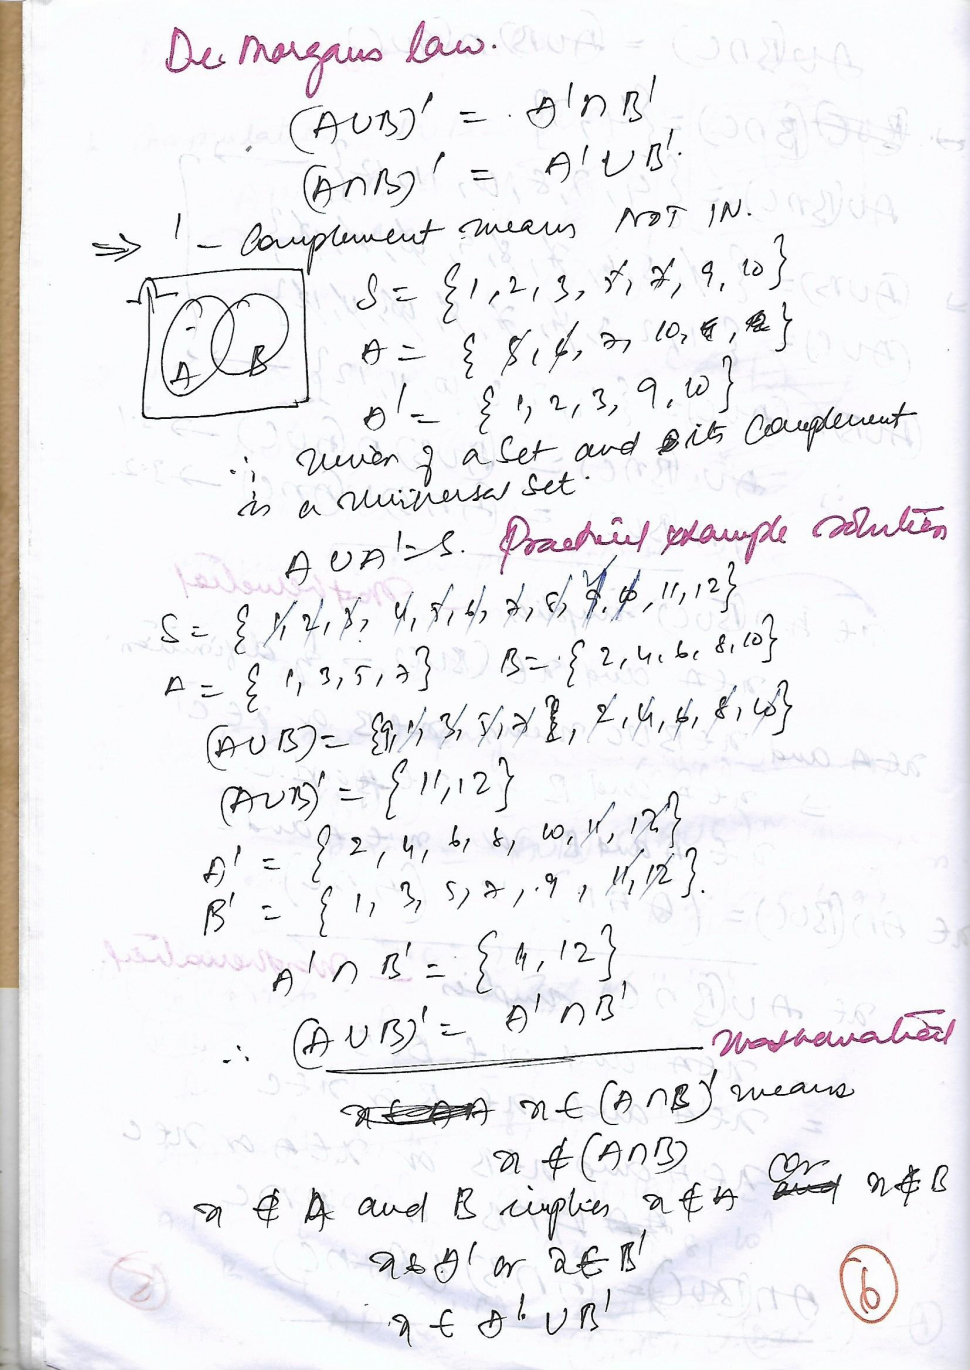 De Morgans law.
(A∪B)' = A'∩B'
(A∩B)' = A'∪B'.
⇒ ' - Complement means NOT IN.
S = {1, 2, 3, 5, 7, 9, 10}
A B
A = {5, 6, 7, 10, , }
A' = {1, 2, 3, 9, 10}
∴ Union of a Set and its Complement
is a Universal Set.
A∪A'=S. Practical example solution
S = {1, 2, 3, 4, 5, 6, 7, 8, 9, 10, 11, 12}
A = {1, 3, 5, 7} B = {2, 4, 6, 8, 10}
(A∪B) = {9, 1, 3, 5, 7, 2, 4, 6, 8, 10}
(A∪B)' = {11, 12}
A' = {2, 4, 6, 8, 10, 11, 12}
B' = {1, 3, 5, 7, 9, 11, 12}.
A' ∩ B' = {11, 12}
∴ (A∪B)' = A'∩B'
Mathematical
x∈(A∩B)' means
x ∉ (A∩B)
x ∉ A and B implies x∉A or x∉B
x∈A' or x∈B'
x ∈ A'∪B'
6